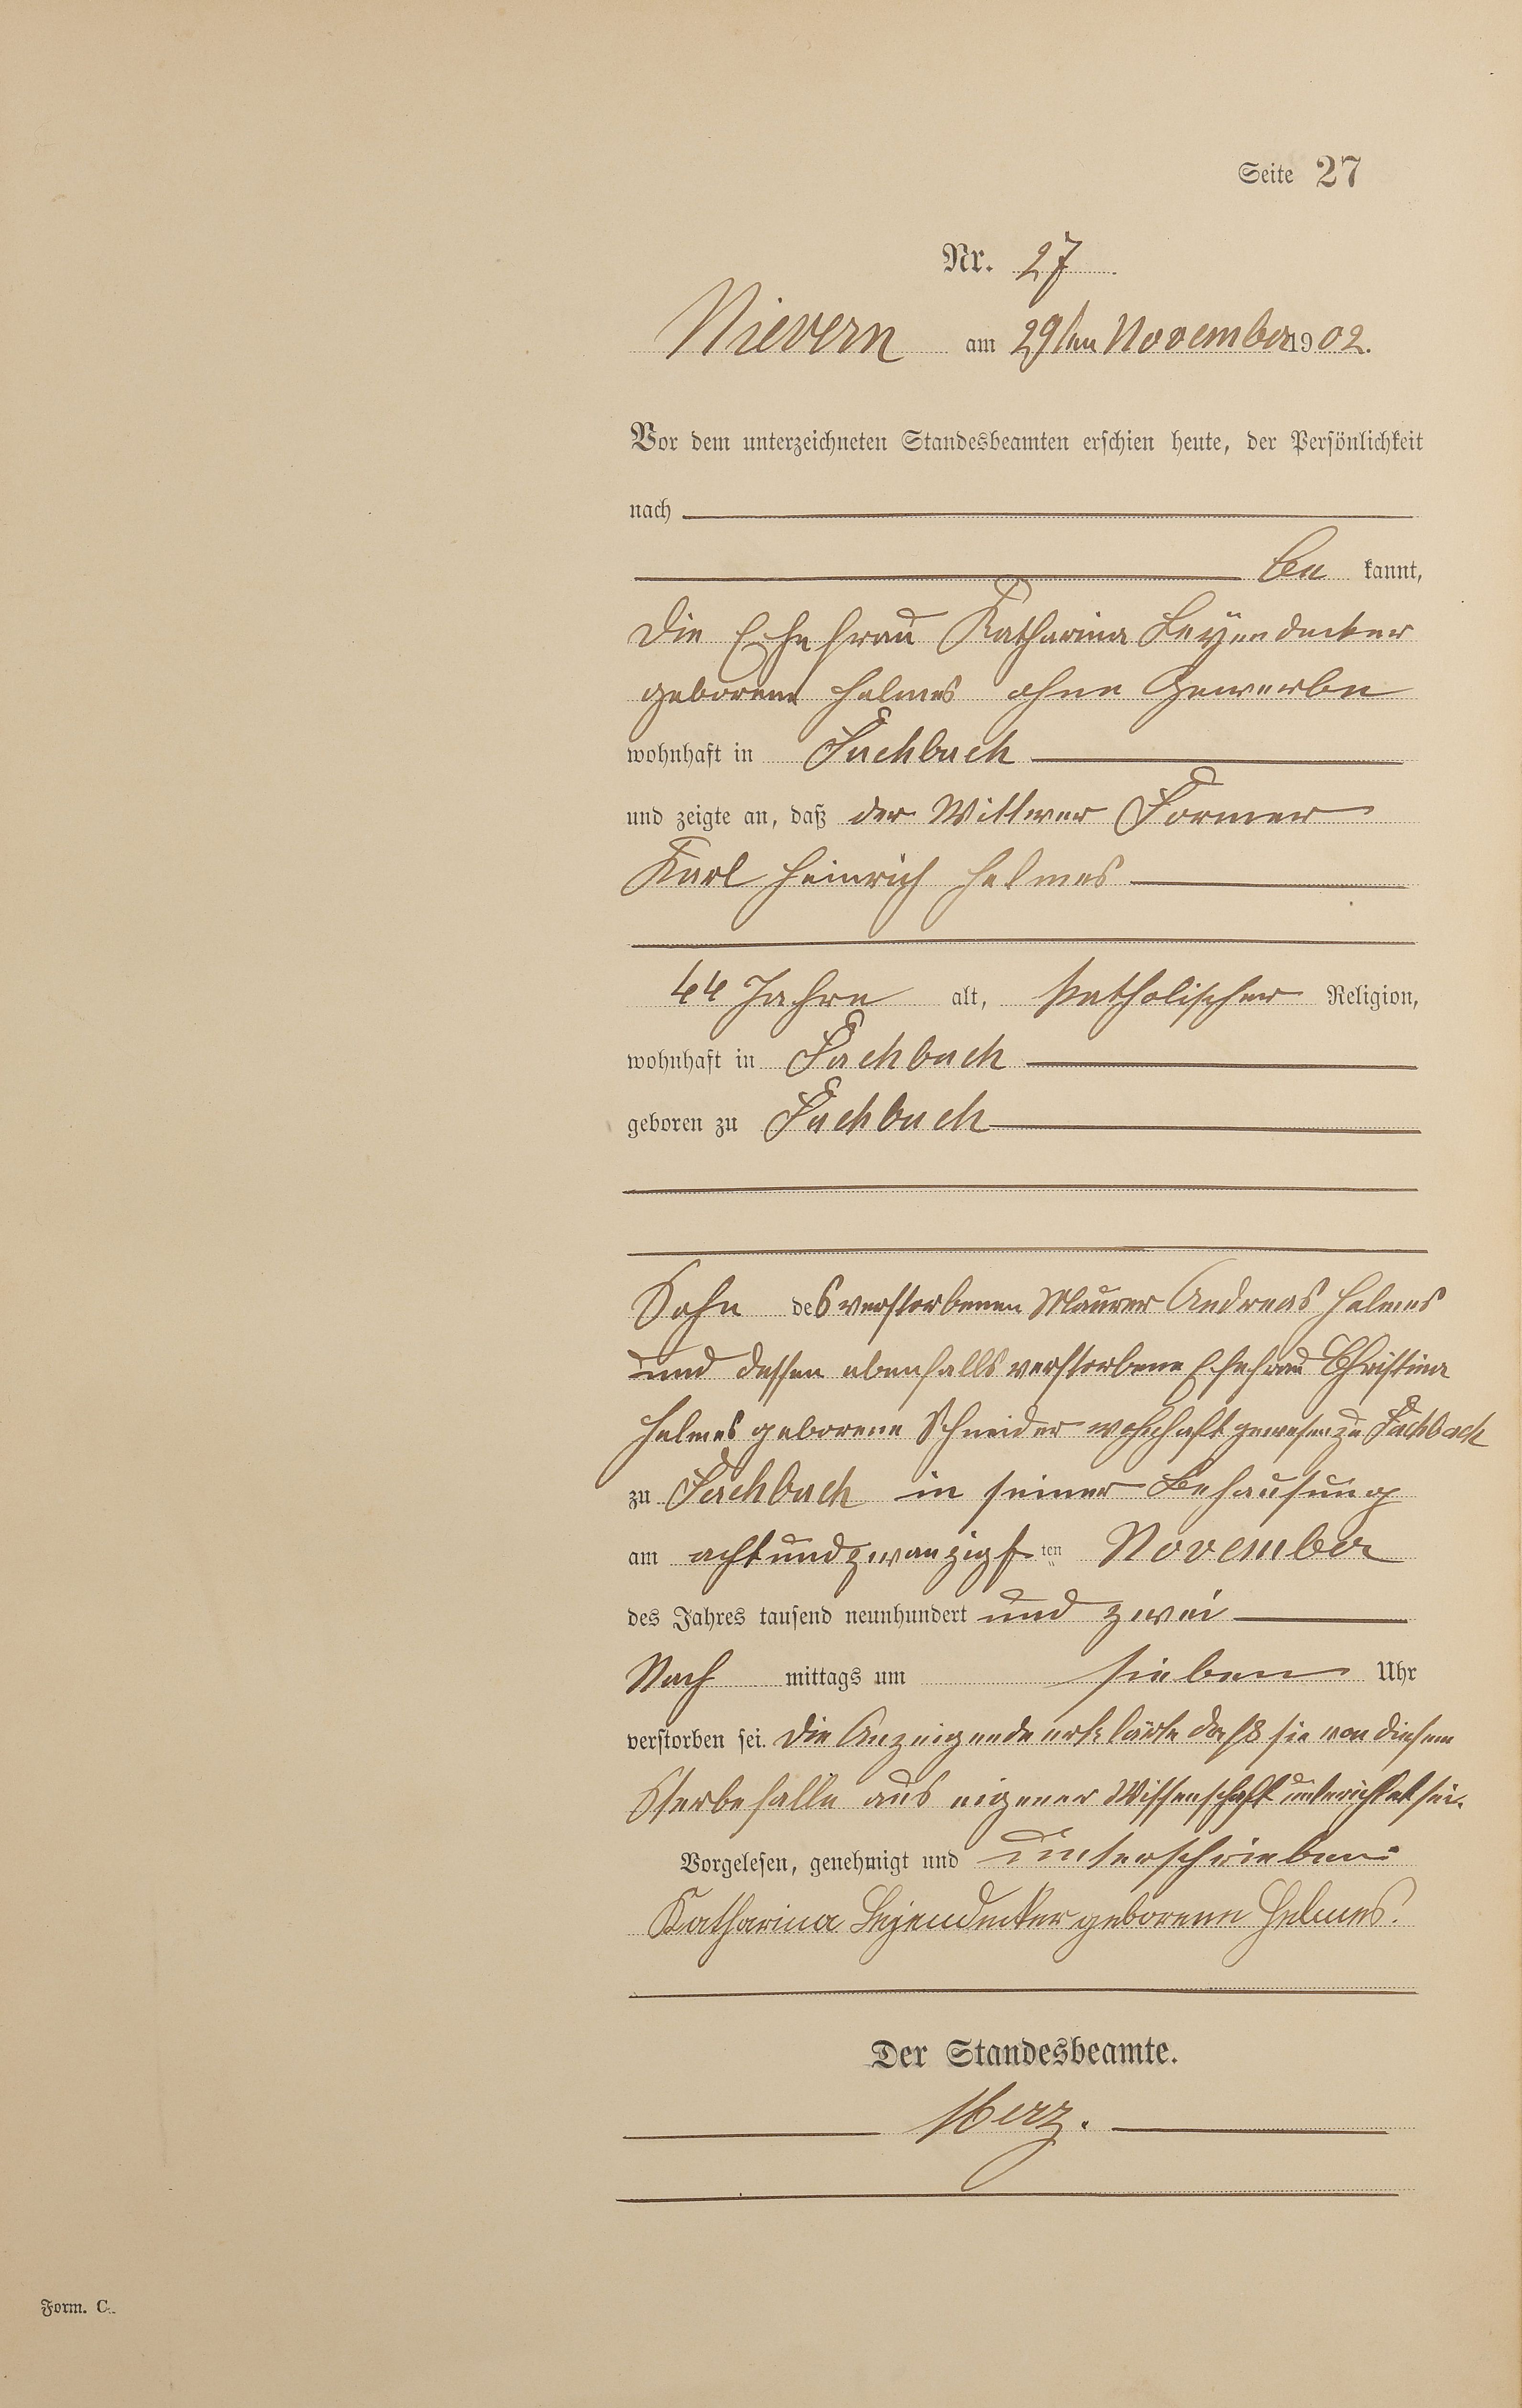 Seite 27
Nr. 27
Nievern am 29ten November 1902.
Vor dem unterzeichneten Standesbeamten erschien heute, der Persönlichkeit
nach
be kannt,
die Ehefrau Katharina Leyendecker
geborene Helmes ohne Gewerbe
wohnhaft in Fachbach
und zeigte an, daß der Wittwer Former
Karl Heinrich Helmes
44 Jahre alt, katholischer Religion,
wohnhaft in Fachbach
geboren zu Fachbach
Sohn des verstorbenen Maurer Andreas Helmes
und dessen ebenfalls verstorbene Ehefrau Christina
Helmes geborene Schneider wohnhaft gewesen zu Fachbach
zu Fachbach in seiner Behausung
am achtundzwanzigsten November
des Jahres tausend neunhundert und zwei
Nach mittags um sieben Uhr
verstorben sei. Die Anzeigende erklärte daß sie von diesem
Sterbefalle aus eigener Wissenschaft unterichtet sei.
Vorgelesen, genehmigt und unterschrieben:
Katharina Lejendecker geborene Helmes.
Der Standesbeamte.
Herz.
Form. C.